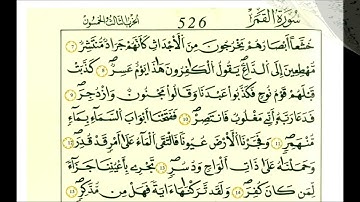 سُورَةُ القَمَر 526 الحزب الثالث والخمسون
خُشَّعًا أَبْصَٰرُهُمْ يَخْرُجُونَ مِنَ ٱلْأَجْدَاثِ كَأَنَّهُمْ جَرَادٌ مُّنتَشِرٌ ٧
مُّهْطِعِينَ إِلَى ٱلدَّاعِ يَقُولُ ٱلْكَٰفِرُونَ هَٰذَا يَوْمٌ عَسِرٌ ٨ كَذَّبَتْ
قَبْلَهُمْ قَوْمُ نُوحٍ فَكَذَّبُوا۟ عَبْدَنَا وَقَالُوا۟ مَجْنُونٌ وَٱزْدُجِرَ ٩
فَدَعَا رَبَّهُۥ أَنِّى مَغْلُوبٌ فَٱنتَصِرْ ١٠ فَفَتَحْنَا أَبْوَٰبَ ٱلسَّمَآءِ بِمَآءٍ
مُّنْهَمِرٍ ١١ وَفَجَّرْنَا ٱلْأَرْضَ عُيُونًا فَٱلْتَقَى ٱلْمَآءُ عَلَىٰ أَمْرٍ قَدْ قُدِرَ ١٢
وَحَمَلْنَٰهُ عَلَىٰ ذَاتِ أَلْوَٰحٍ وَدُسُرٍ ١٣ تَجْرِى بِأَعْيُنِنَا جَزَآءً
لِّمَن كَانَ كُفِرَ ١٤ وَلَقَد تَّرَكْنَٰهَآ ءَايَةً فَهَلْ مِن مُّدَّكِرٍ ١٥